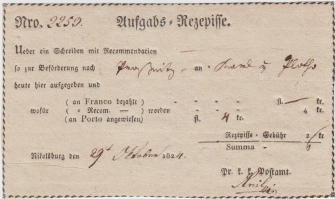 Nro. 2250. Aufgabs-Rezepisse.
Ueber ein Schreiben mit Recommendation
so zur Beförderung nach - an
heute hier aufgegeben und
( an Franco bezahlte ) - fl. - kr.
wofür ( » Recom. — ) worden - 4 kr.
( an Porto angewiesen ) fl. 4 kr.
Rezepisse-Gebühr 2 kr
Summa
Nikolsburg den 29t Oktober 1824.
Pr. k. k. Postamt.